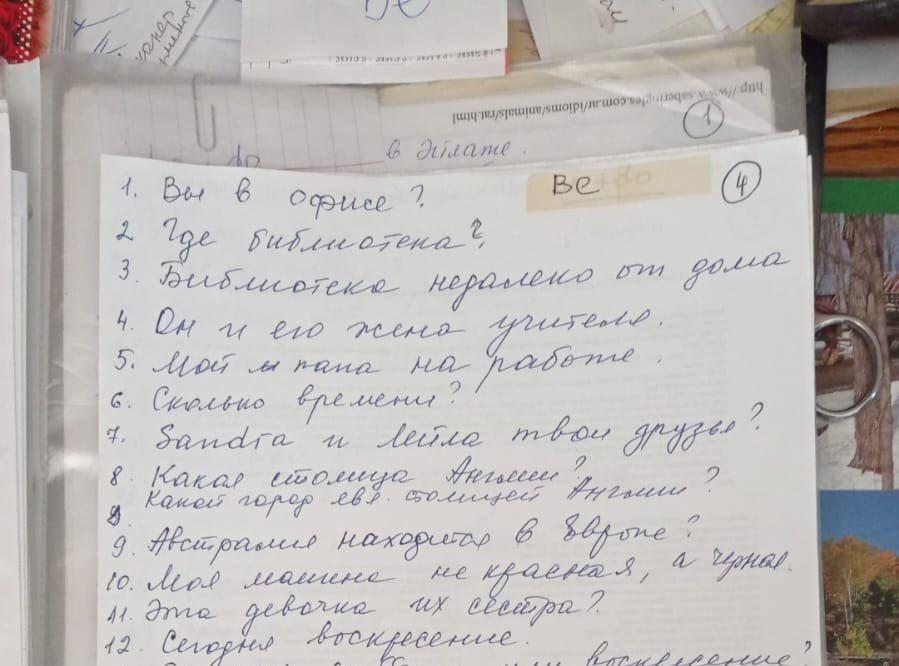 Be
http://www.saberingles.com.ar/idioms/animals/rat.html
1
в Эйлате.
Be
4
1. Вы в офисе?
2 Где библиотека?
3. Библиотека недалеко от дома
4. Он и его жена учителя.
5. Мой папа на работе.
6. Сколько времени?
7. Sandra и Лейла твои друзья?
8. Какая столица Англии?
Какой город явл. столицей Англии?
9. Австралия находится в Европе?
10. Моя машина не красная, а черная.
11. Эта девочка их сестра?
12. Сегодня воскресение.
воскресение?